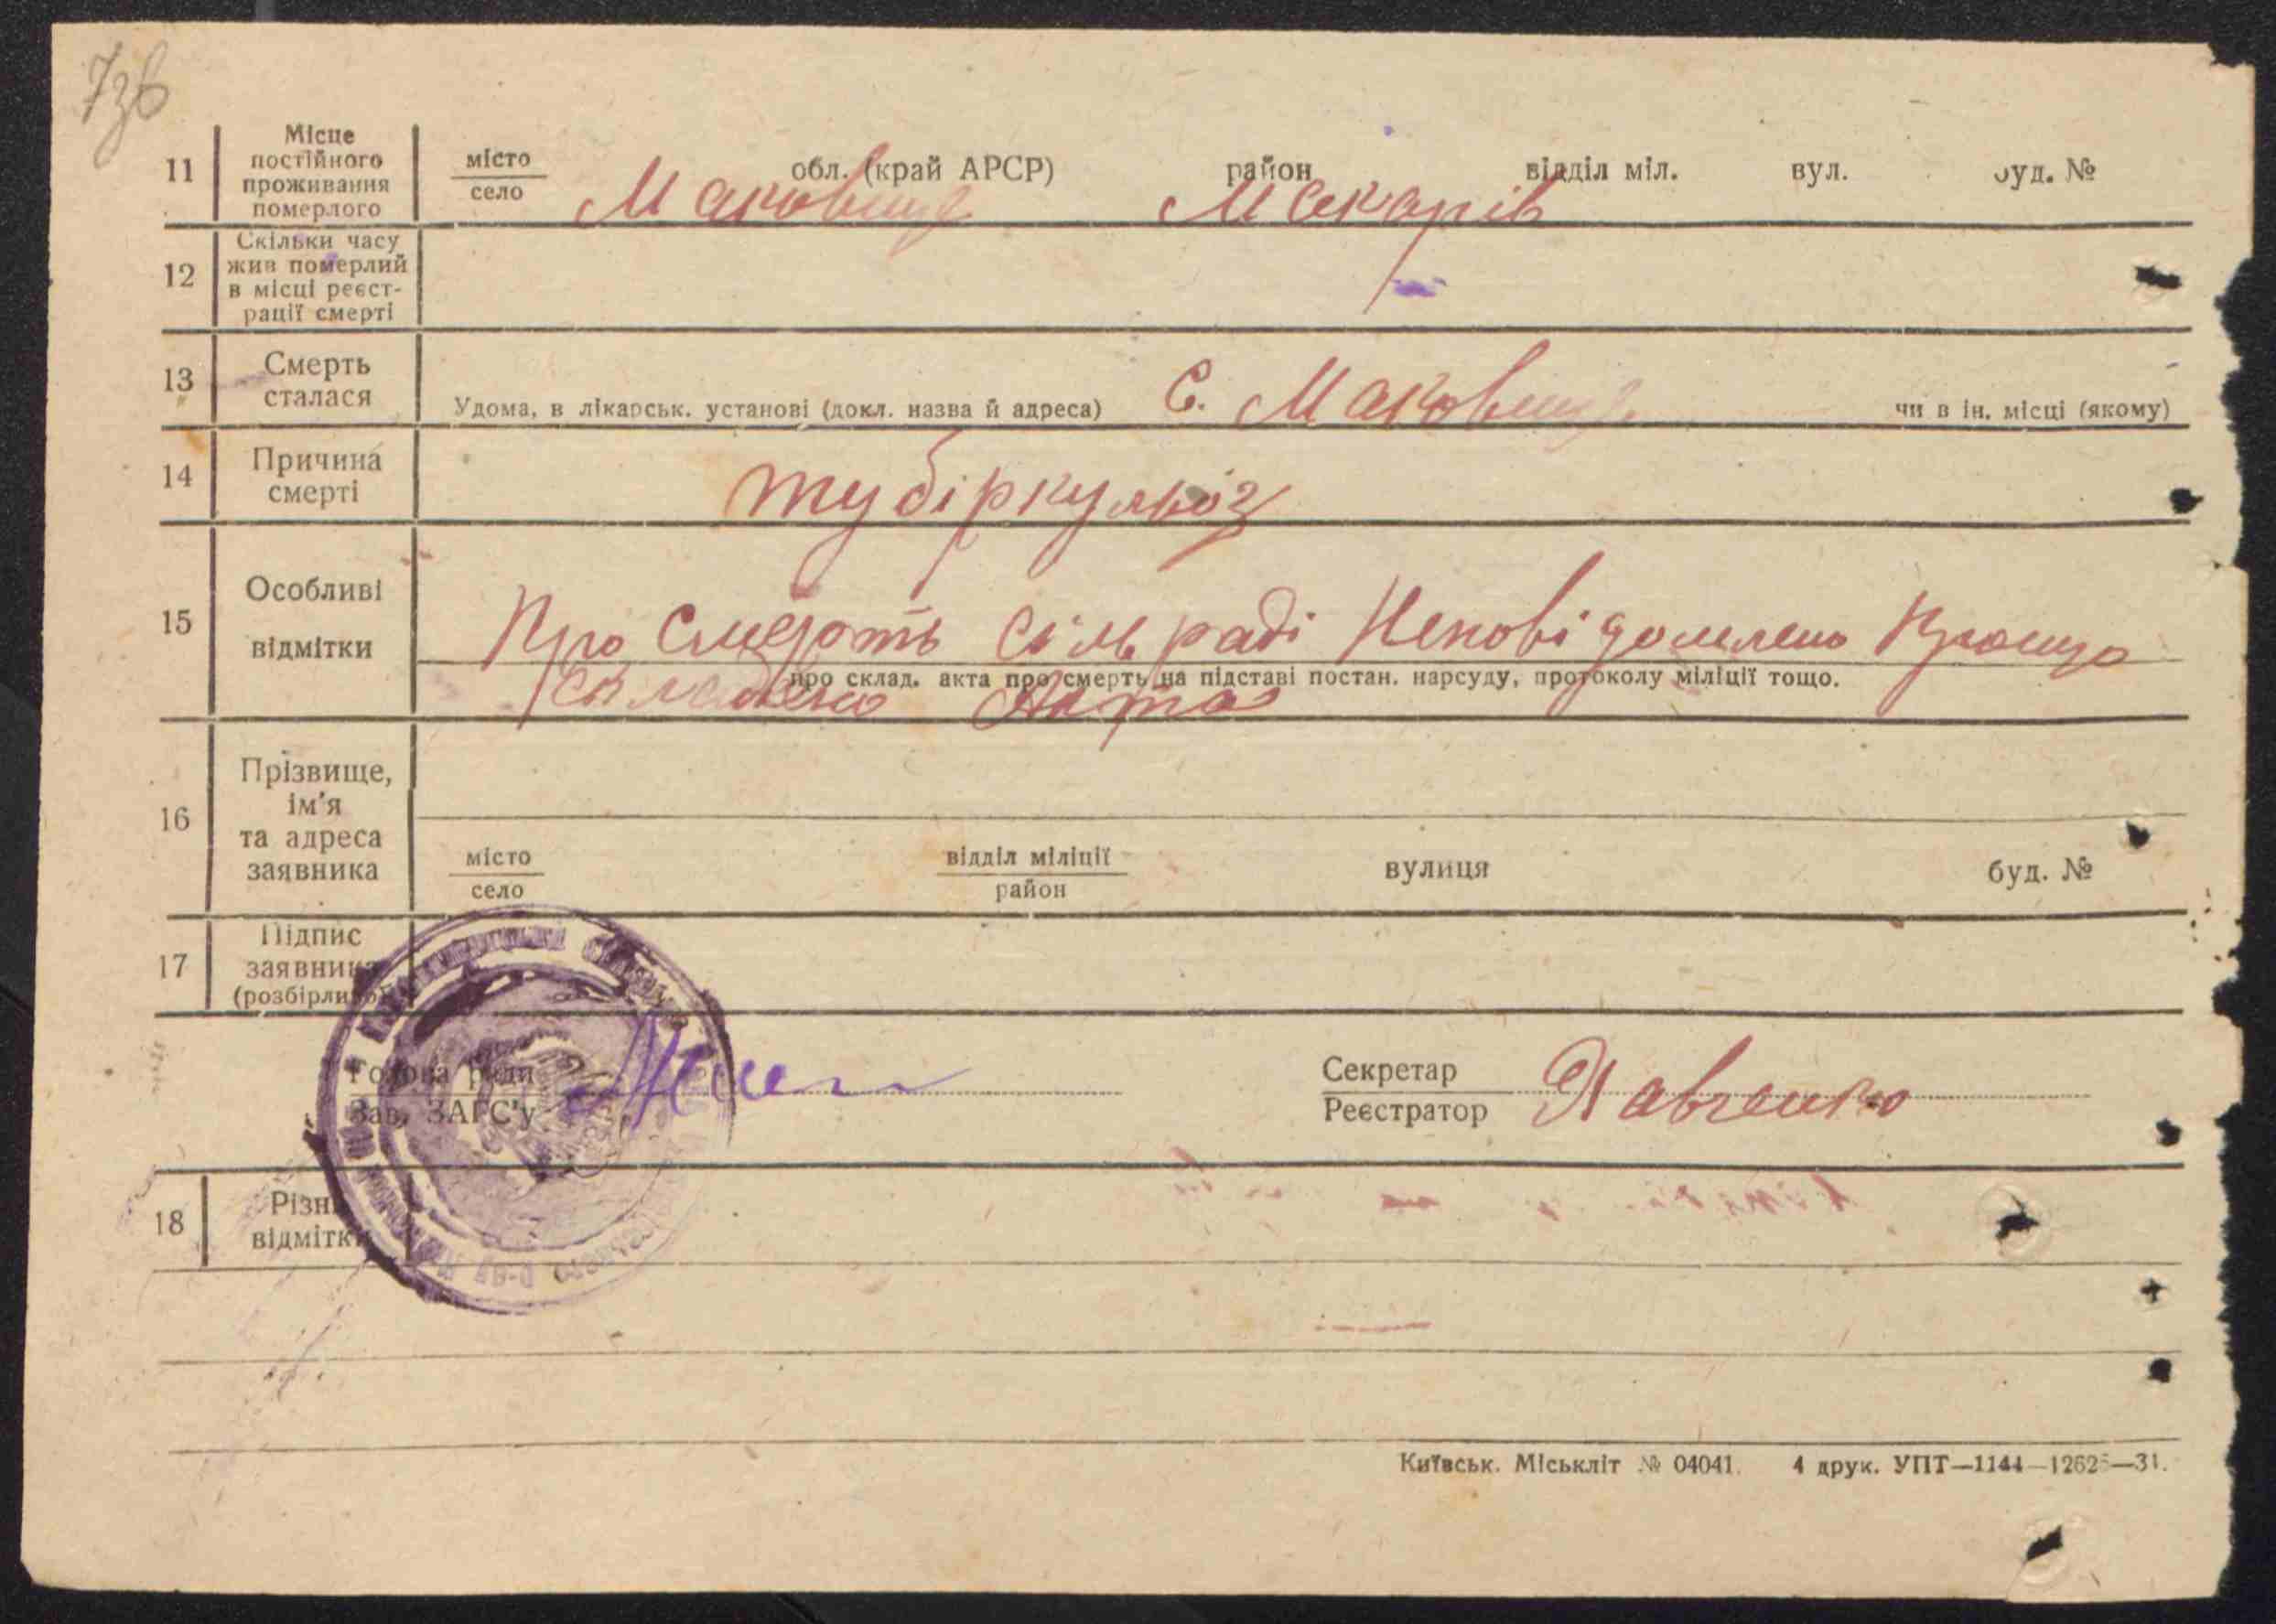 7зв
11 Місце постійного проживання померлого місто село Маковище обл. (край АРСР) район Макарів відділ міл. вул. буд. №
12 Скільки часу жив померлий в місці реєст-рації смерті
13 Смерть сталася Удома, в лікарськ. установі (докл. назва й адреса) С. Маковище чи в ін. місці (якому)
14 Причина смерті тубіркульоз
15 Особливі відмітки Про Смерть сільраді Неповідомлено
про склад. акта про смерть на підставі постан. нарсуду, протоколу міліції тощо.
складено Акта
16 Прізвище, ім'я та адреса заявника
місто село відділ міліції район вулиця буд. №
17 Підпис заявника (розбірливо)
Голова ради Зав. ЗАГС'у Секретар Реєстратор Павченко
18 Різні відмітки
Київськ. Міськліт № 04041. 4 друк. УПТ—1144